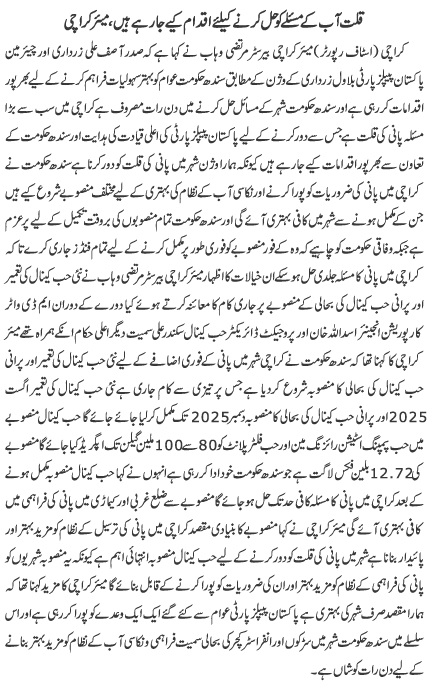 قلت آب کے مسئلے کو حل کرنے کیلئے اقدام کیے جا رہے ہیں، میئر کراچی
کراچی (اسٹاف رپورٹر) میئر کراچی بیرسٹر مرتضیٰ وہاب نے کہا ہے کہ صدر آصف علی زرداری اور چیئرمین
پاکستان پیپلز پارٹی بلاول زرداری کے وژن کے مطابق سندھ حکومت عوام کو بہتر سہولیات فراہم کرنے کے لیے بھرپور
اقدامات کر رہی ہے اور سندھ حکومت شہر کے مسائل حل کرنے میں دن رات مصروف ہے کراچی میں سب سے بڑا
مسئلہ پانی کی قلت ہے جس سے دور کرنے کے لیے پاکستان پیپلز پارٹی کی اعلیٰ قیادت کی ہدایت اور سندھ حکومت کے
تعاون سے بھرپور اقدامات کیے جا رہے ہیں کیونکہ ہمارا وژن شہر میں پانی کی قلت کو دور کرنا ہے سندھ حکومت نے
کراچی میں پانی کی ضروریات کو پورا کرنے اور نکاسی آب کے نظام کی بہتری کے لیے مختلف منصوبے شروع کیے ہیں
جن کے مکمل ہونے سے شہر میں کافی بہتری آئے گی اور سندھ حکومت تمام منصوبوں کی بروقت تکمیل کے لیے پرعزم
ہے جبکہ وفاقی حکومت کو چاہیے کہ وہ کے فور منصوبے کو فوری طور پر مکمل کرنے کے لیے تمام فنڈز جاری کرے تاکہ
کراچی میں پانی کا مسئلہ جلدی حل ہو سکے ان خیالات کا اظہار میئر کراچی بیرسٹر مرتضیٰ وہاب نے نئی حب کینال کی تعمیر
اور پرانی حب کینال کی بحالی کے منصوبے پر جاری کام کا معائنہ کرتے ہوئے کیا دورے کے دوران ایم ڈی واٹر
کارپوریشن انجینئر اسد اللہ خان اور پروجیکٹ ڈائریکٹر حب کینال سکندر علی سمیت دیگر اعلیٰ حکام انکے ہمراہ تھے میئر
کراچی کا کہنا تھا کہ سندھ حکومت نے کراچی شہر میں پانی کے فوری اضافے کے لیے نئی حب کینال کی تعمیر اور پرانی
حب کینال کی بحالی کا منصوبہ شروع کر دیا ہے جس پر تیزی سے کام جاری ہے نئی حب کینال کی تعمیر اگست
2025 اور پرانی حب کینال کی بحالی کا منصوبہ دسمبر 2025 تک مکمل کر لیا جائے جائے گا حب کینال منصوبے
میں حب پمپنگ اسٹیشن رائزنگ مین اور حب فلٹر پلانٹ کو 80 سے 100 ملین گیلن تک اپگریڈ کیا جائے گا منصوبے
کی 12.72 بلین فکس لاگت ہے جو سندھ حکومت خود ادا کر رہی ہے انہوں نے کہا حب کینال منصوبہ مکمل ہونے
کے بعد کراچی میں پانی کا مسئلہ کافی حد تک حل ہو جائے گا منصوبے سے ضلع غربی اور کیماڑی میں پانی کی فراہمی میں
کافی بہتری آئے گی میئر کراچی نے کہا منصوبے کا بنیادی مقصد کراچی میں پانی کی ترسیل کے نظام کو مزید بہتر اور
پائیدار بنانا ہے شہر میں پانی کی قلت کو دور کرنے کے لیے حب کینال منصوبہ انتہائی اہم ہے کیونکہ یہ منصوبہ شہریوں کو
پانی کی فراہمی کو مزید بہتر اور ان کی ضروریات کو پورا کرنے کے قابل بنائے گا میئر کراچی کا مزید کہنا تھا کہ
ہمارا مقصد صرف شہر کی بہتری ہے پاکستان پیپلز پارٹی عوام سے کئے گئے ایک ایک وعدے کو پورا کر رہی ہے اور اس
سلسلے میں سندھ حکومت شہر میں سڑکوں اور انفراسٹرکچر کی بحالی سمیت فراہمی و نکاسی آب کے نظام کو مزید بہتر بنانے کے
لیے دن رات کوشاں ہے۔